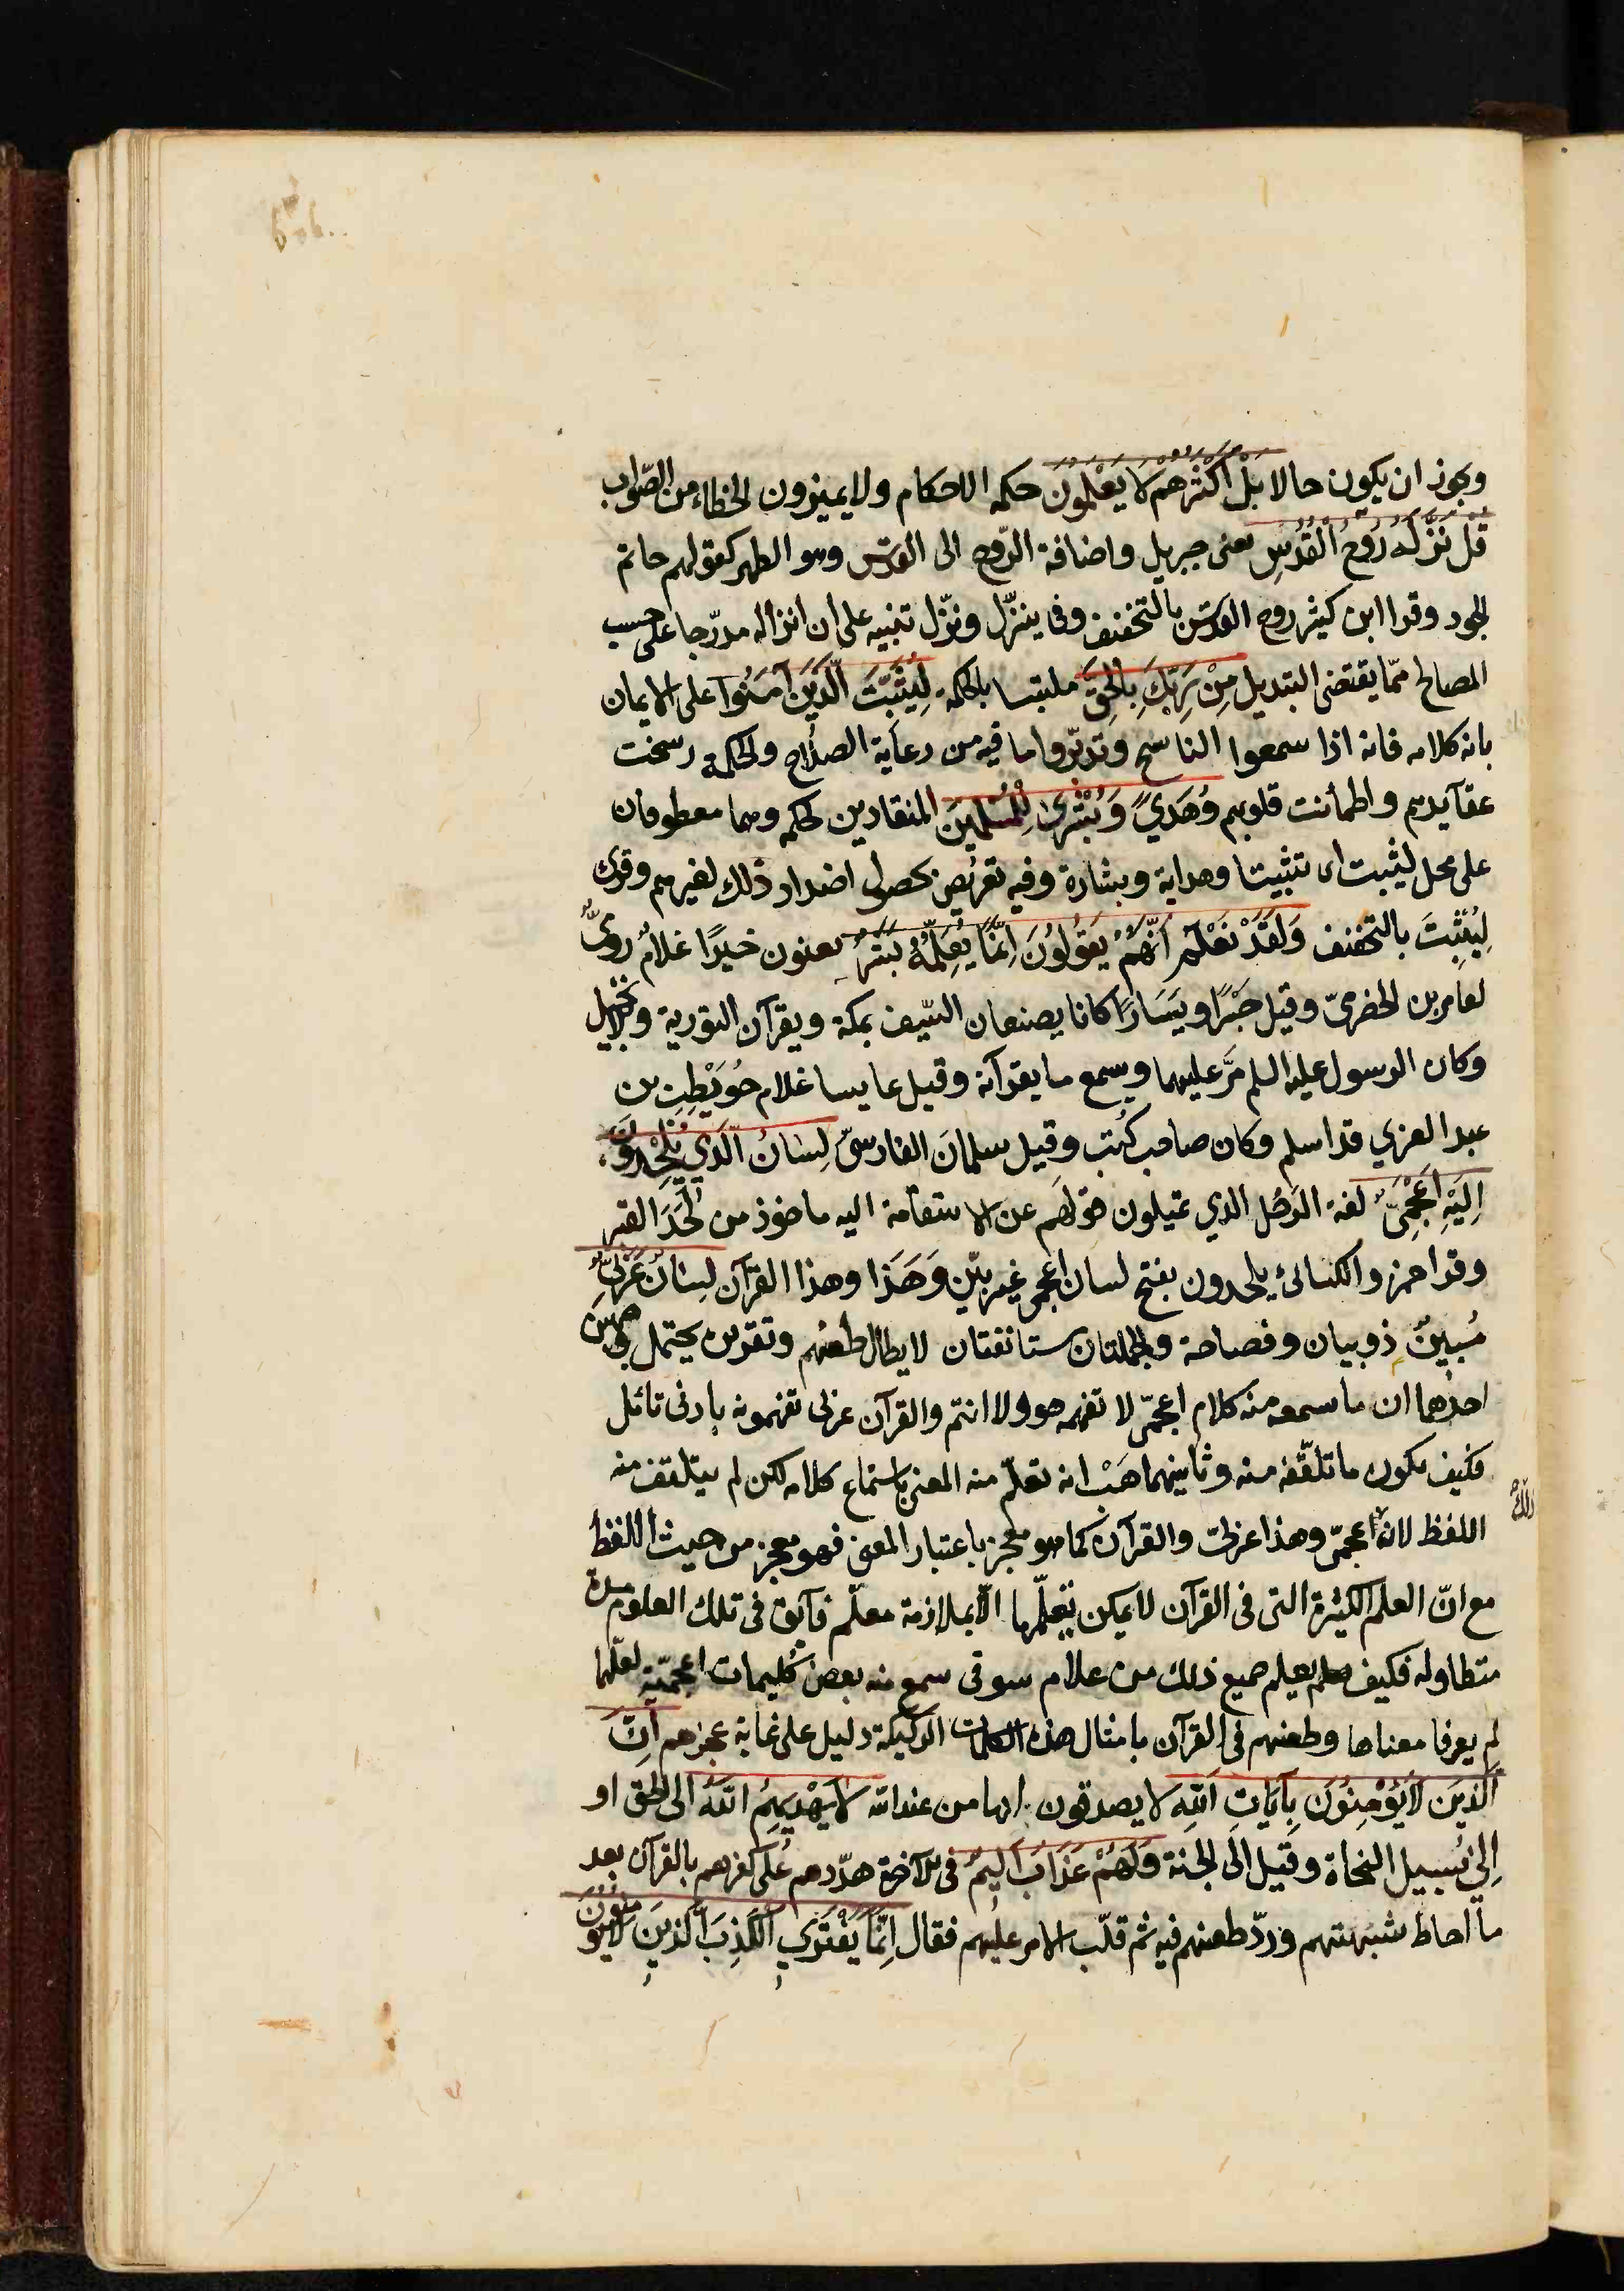 ويجوز ان يكون حالا بَلْ اَكْثَرُهُم لَا يَعْلَمُونَ حكمه الاحكام ولا يميزون الخطاء من الصّواب
قُلْ نَزَّلَهُ رُوحُ الْقُدُسِ يعنى جبريل واضافة الرّوح الى القدس وهو الطهر كقولهم حاتم
الجود وقرا ابن كيثر روح القدس بالتخفيف وفى ينزّل ونزّل تنبيه على ان انزاله مدرّجا على حسب
المصالح ممّا يقتضى التبديل مِنْ رَبِّكَ بِالْحَقِّ ملتبسا بالحكمة لِيُثَبِّتَ الَّذِينَ آمَنُوا على الايمان
بانه كلامه فانه اذا سمعوا الناسخ وتدبّروا ما فيه من رعاية الصلاح والحكمه رسخت
عقآيدهم واطمأنت قلوبهم وَهُدَيً وَبُشْرَىٰ لِلْمُسْلِمِينَ المنقادين لحكمه وهما معطوفان
على محل ليثبت اى تثبيتا وهداية وبشارة وفيه تعريض بحصول اضداد ذلك لغيرهم وقرئ
لِيُثْبِتَ بالتخفيف وَلَقَدْ نَعْلَمُ اَنَّهُمْ يَقُولُونَ اِنَّمَا يُعَلِّمُهُ بَشَرٌ يعنون خيرًا غلامٌ روميٌّ
لعامر بن الحضرميّ وقيل جَبْرًا ويَسَارًا كانا يصنعان السّيف بمكة ويقرآن التورية والانجيل
وكان الرسول عليه السلم مَّر عليهما ويسمع ما يقرآنه وقيل عايسا غلام حُوَيْطِب بن
عبد العزي قد اسلم وكان صاحب كُتب وقيل سلمانَ الفارسىّ لِسَانُ الَّذِي يُلْحِدُونَ
اِلَيْهِ اَعْجَمِىٌّ لغة الرَجُل الذي يميلون قولهم عن الاستقامة اليه ماخوذ من لَحَدَ القبر
وقرا حمز والكسائئ يلحدون بفتح لسان اعجمى غير بيّن وَهَذا وهذا القرآن لِسَانٌ عَرَبِيٌّ
مُبِينٌ ذو بيان وفصاحة والجملتان مستانفتان لابطال طعنهم وتقريره يحتمل وجهين
احدهما ان ما سمعه منه كلام اعجميّ لا تفهمه هو ولا انتم والقرآن عربى تفهمونه بادنى تائل
فكيف يكون ما تلقّفه منه وثانيهما هَبْ انه تعلّم منه المعنى باستماع كلامه لكن لم يتلقف منه
اللفظ لانه اعجميّ وهذا عربيّ والقرآن كما هو معجز باعتبار المعنى فهو معجز من حيث اللفظ
ذلك
مع انّ العلم الكثيرة التى فى القرآن لا يمكن تعلّمها الّا بملازمة معلّم فآيق فى تلك العلوم مدة
متطاوله فكيف يعلم جميع ذلك من غلام سوقى سمع منه بعض كُليمات اعجميّة لعلّهما
لم يعرفا معناها وطعنهم فى القرآن بامثال هذه الكلمات الركيكة دليل على غاية عجزهم اِنَّ
الَّذِينَ لَايُؤْمِنُونَ بِآيَاتِ اللّٰهِ لا يصدقون انها من عند الله لَا يَهْدِيهِمُ اللّٰهُ الى الحق او
اِلي سبيل النجاة وقيل الى الجنة وَلَهُمْ عَذَابٌ اَلِيمٌ فى الآخرة هدّدهم على كفرهم بالقرآن بعد
ما اماط شبهتهم وردّ طعنهم فيه ثم قلّب الامر عليهم فقال اِنَّمَا يَفْتَرِي الْكَذِبَ الَّذِينَ لَايُؤْمِنُونَ